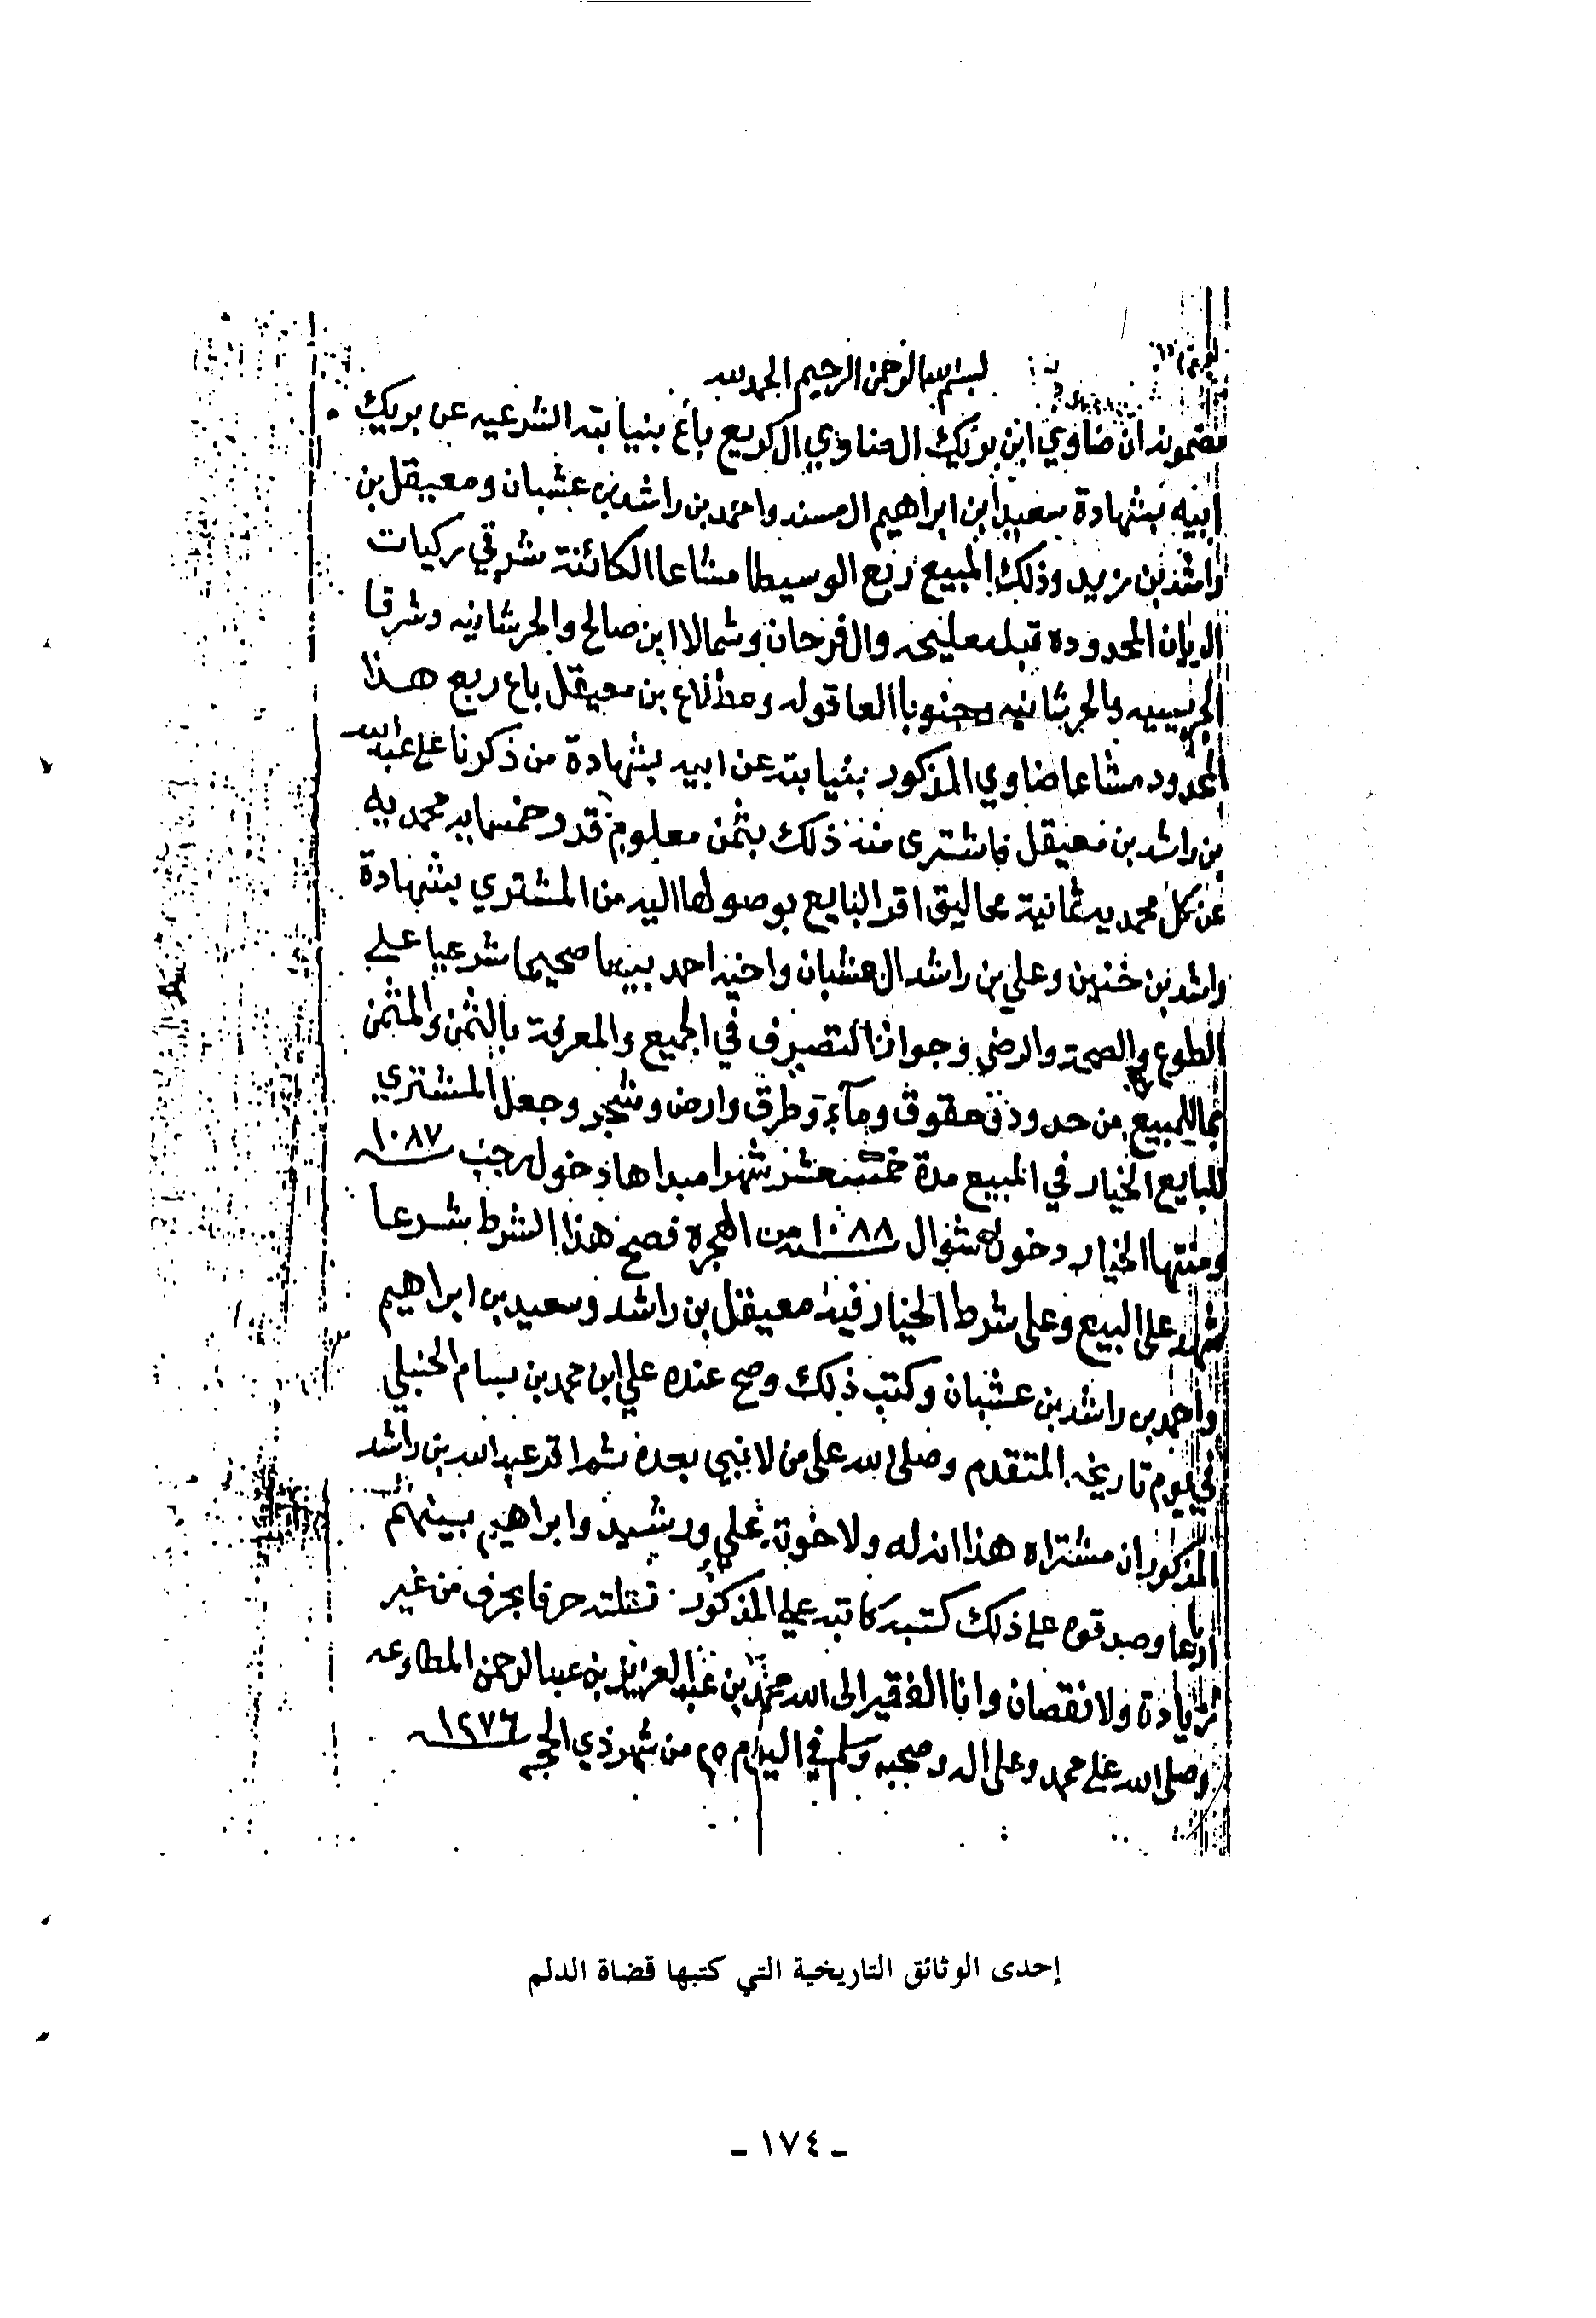 بسم الله الرحمن الرحيم الحمد لله
مضمونه ان ضاوي ابن بريك الضاوي ال كريع باع بنيابته الشرعيه عن بريك
ابيه بشهادة سعيد ابن ابراهيم ال مسند واحمد بن راشد بن عشبان ومعيقل بن
راشد بن زيد وذلك المبيع ربع الوسيطا مشاعا الكائنة شرقي ركيات
المحدوده قبله معليجه والفرحان وشمالا ابن صالح والحرشانيه وشرقا
والحرشانيه وجنوبا العاقوله ومطلاع بن معيقل باع ربع هذا
المحدود مشاعا ضاوي المذكور بنيابته عن ابيه بشهادة من ذكرنا على عبد الله
بن راشد بن معيقل فاشترى منه ذلك بثمن معلوم قدره خمسمايه محمديه
عن كل محمديه ثمانية محاليق اقر البايع بوصولها اليه من المشتري بشهادة
راشد بن خنين وعلي بن راشد ال عشبان واخيه احمد بيعا صحيحا شرعيا على
الطوع والصحة والرضى وجواز التصرف في الجميع والمعرفة بالثمن والمثمن
بما للمبيع من حدود وحقوق وماء وطرق وارض وشجر وجعل المشتري
للبايع الخيار في المبيع مدة خمسة عشر شهرا مبداها دخول رجب ١٠٨٧
ومنتها الخيار دخول شوال ١٠٨٨ من الهجره فصح هذا الشرط شرعا
شهد على البيع وعلى شرط الخيار فيه معيقل بن راشد وسعيد بن ابراهيم
واحمد بن راشد بن عشبان وكتب ذلك وصح عنده علي ابن محمد بن بسام الحنبلي
في يوم تاريخه المتقدم وصلى الله على من لا نبي بعده ثم اقر عبد الله بن راشد
المذكور ان مشتراه هذا انه له ولاخوته علي ورشيد وابراهيم بينهم
ارباعا وصدقوه على ذلك كتبه كاتبه علي المذكور نقلته حرفا بحرف من غير
زيادة ولا نقصان وانا الفقير الى الله محمد بن عبد العزيز بن عبد الرحمن المطاوعه
وصلى الله على محمد وعلى اله وصحبه وسلم في اليوم ٢٥ من شهر ذي الحجه ١٢٧٦
إحدى الوثائق التاريخية التي كتبها قضاة الدلم
- ١٧٤ -